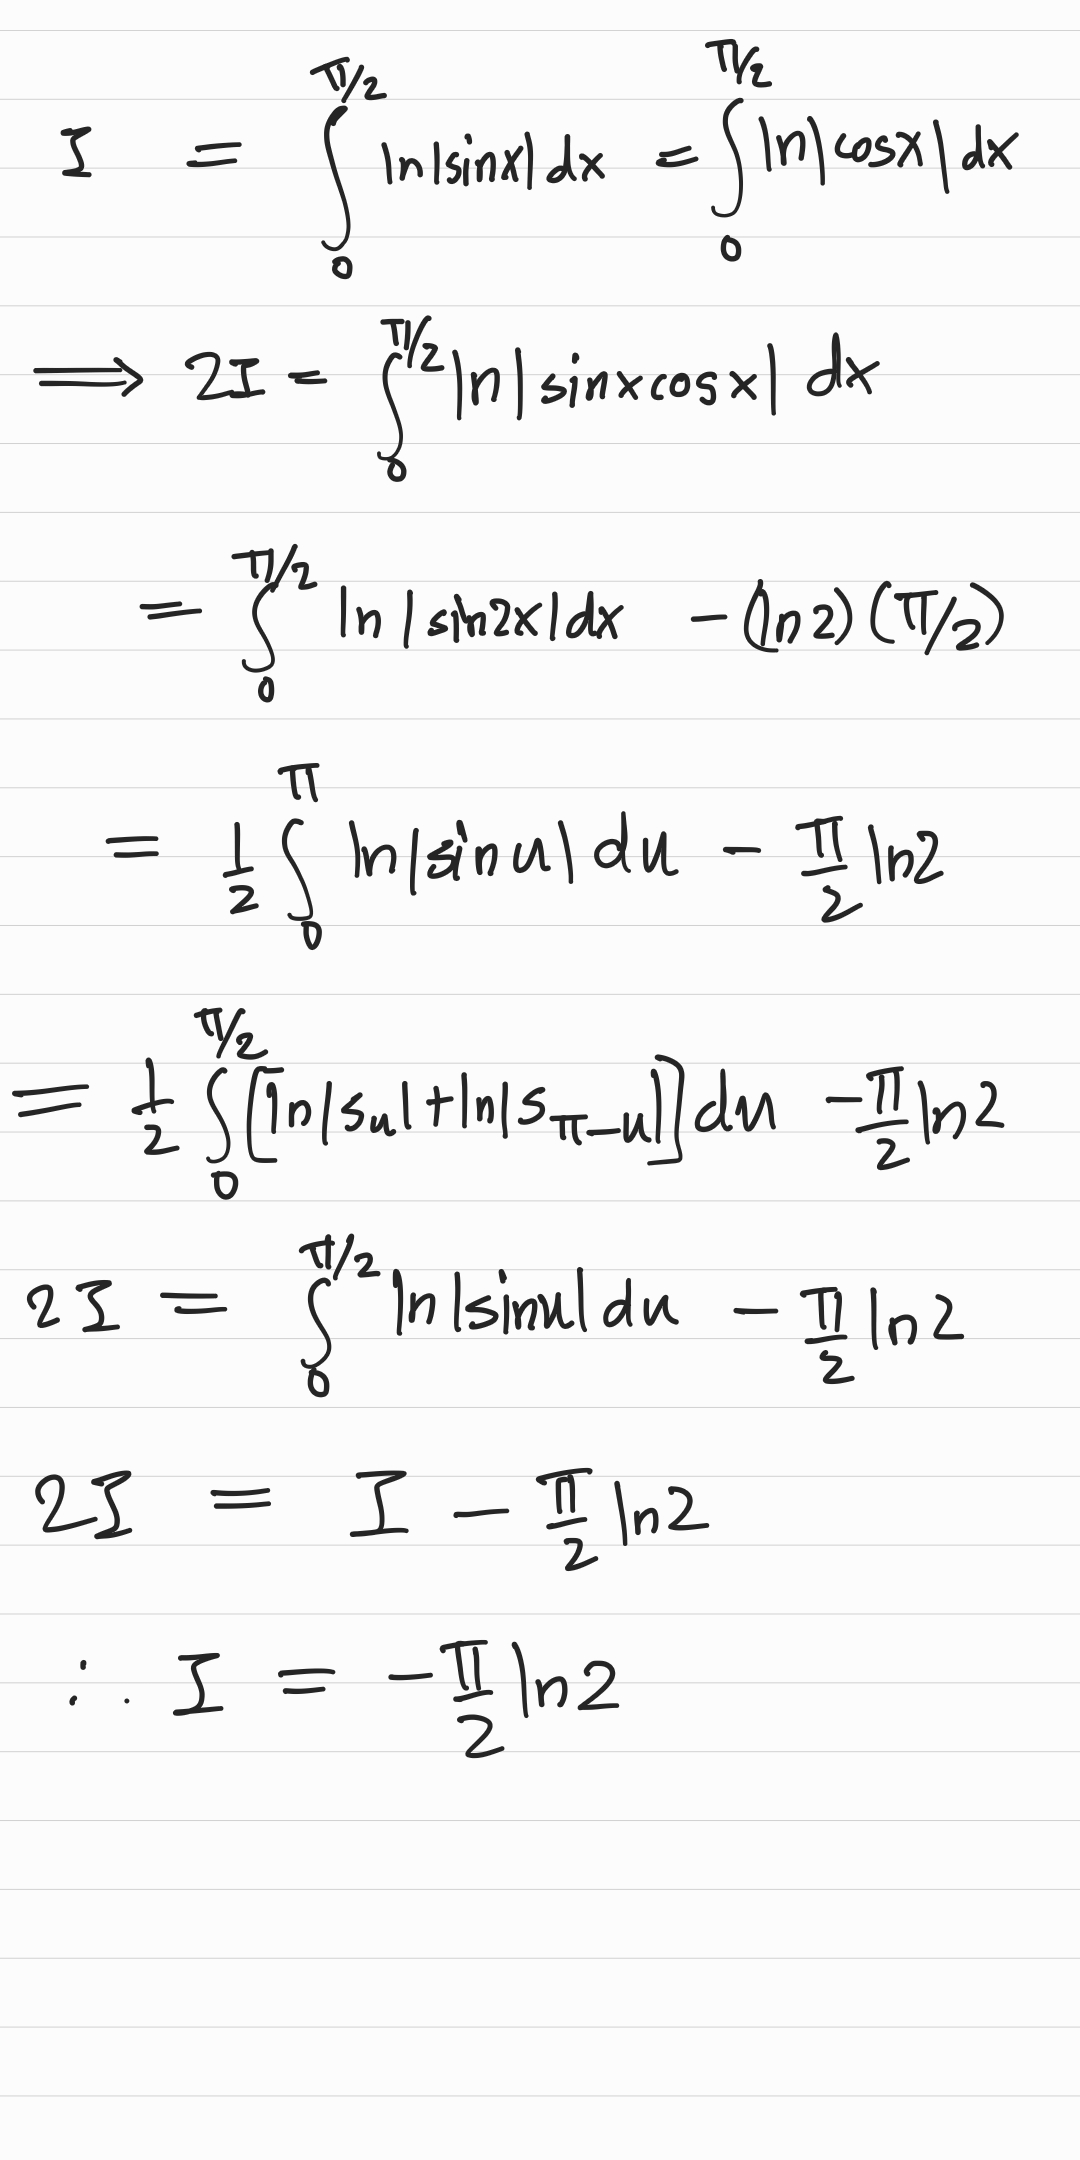 I = ∫₀^{π/2} ln|sinx| dx = ∫₀^{π/2} ln|cosx| dx
⟹ 2I = ∫₀^{π/2} ln|sinxcosx| dx
= ∫₀^{π/2} ln|sin2x|dx - (ln2)(π/2)
= 1/2 ∫₀^{π} ln|sinu| du - π/2 ln2
= 1/2 ∫₀^{π/2} [ln|s_u| + ln|s_{π-u}|] du - π/2 ln2
2I = ∫₀^{π/2} ln|sinu| du - π/2 ln2
2I = I - π/2 ln2
∴ I = -π/2 ln2